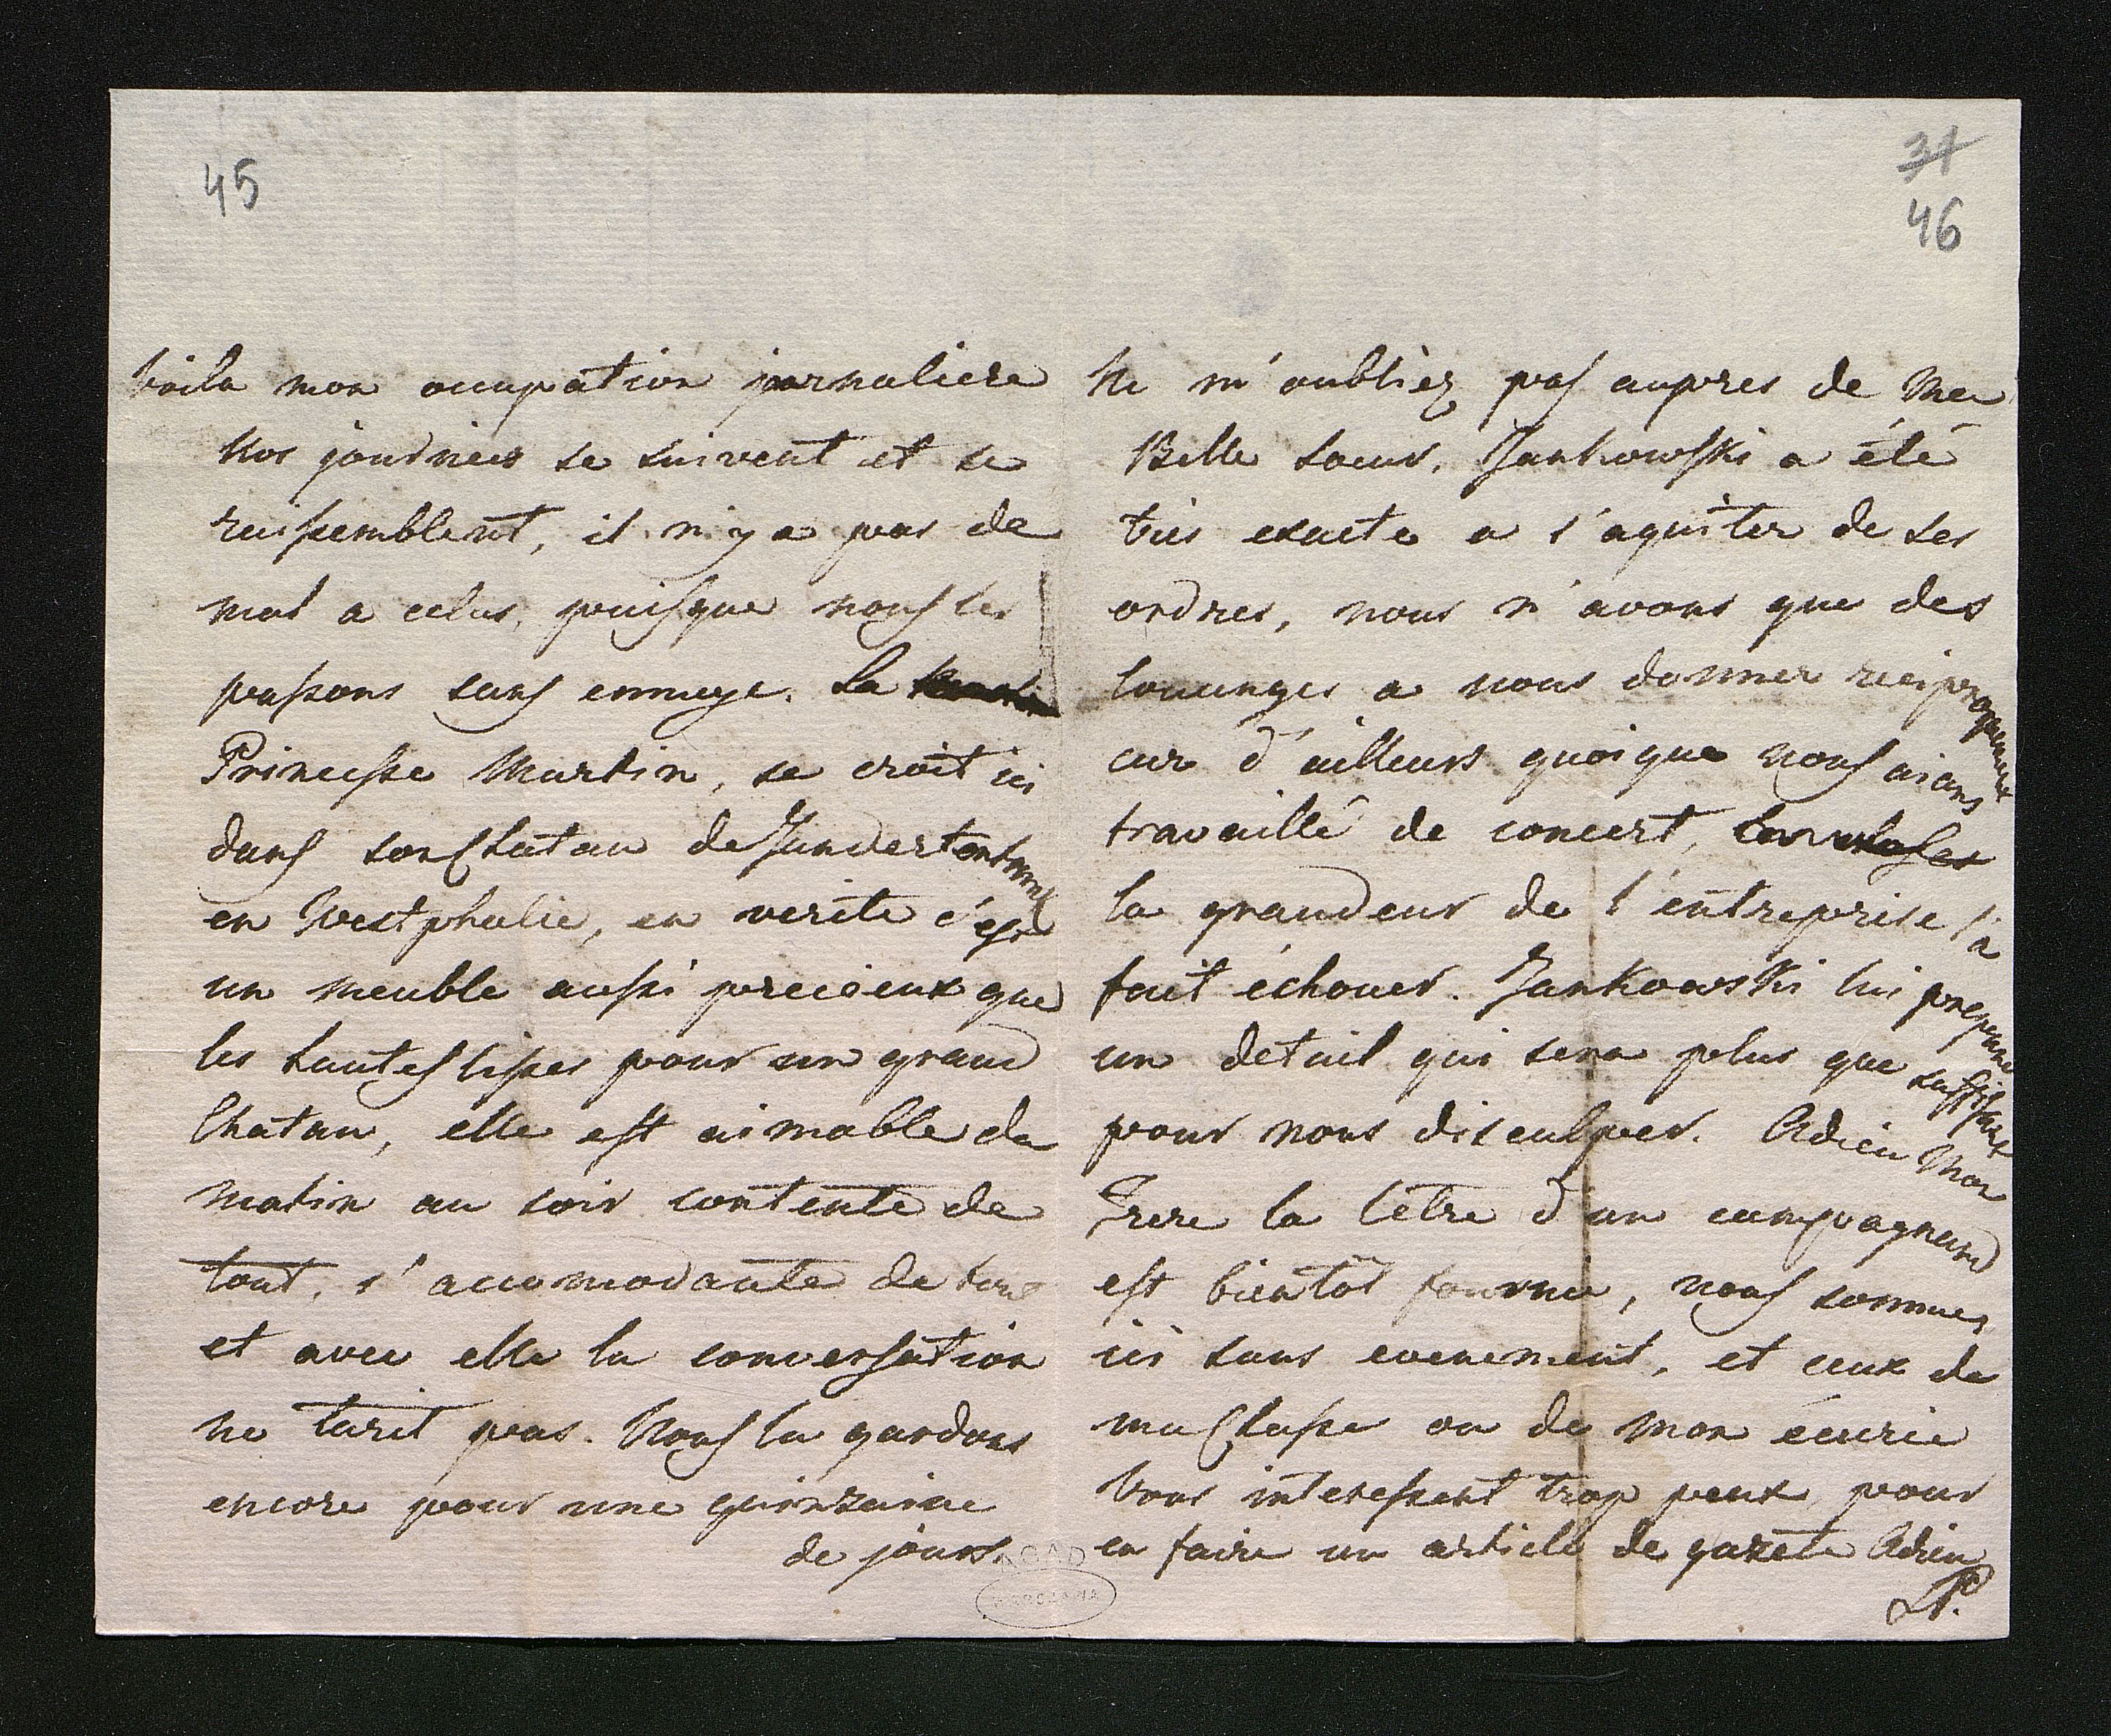 45
voila mon occupation journaliere
Nos journées se suivent et se
ressemblent, il n'y a pas de
mal a celas, puisque nous les
passons sans ennuye. La
Princesse Martin, se croit ici
dans son Chatau de
en Westphalie, en verité c'est
un meuble aussi precieux que
les hautes lisses pour un grand
Chatau, elle est aimable du
matin au soir contente de
tout, s'accomodante de tout
et avec elle la conversation
ne tarit pas. Nous la gardons
encore pour une quinzaine
de jours.
31
46
Ne m'oubliez pas aupres de Ma
Belle soeur, Jankowski a été
très exacte a s'aquiter de ses
ordres, nous n'avons que des
louanges a nous donner reciproquement
car d'ailleurs quoique nous aions
travaillé de concert,
la grandeur de l'entreprise l'a
fait échouer. Jankowski lui prepare
un detail qui sera plus que suffisant
pour nous disculper. Adieu Mon
Frere la letre d'un campagnard
est bientôt fournie, nous sommes
ici sans evenement, et ceux de
ma Chasse ou de mon écurie
Vous interessent trop peux pour
en faire un article de gazete Adieu